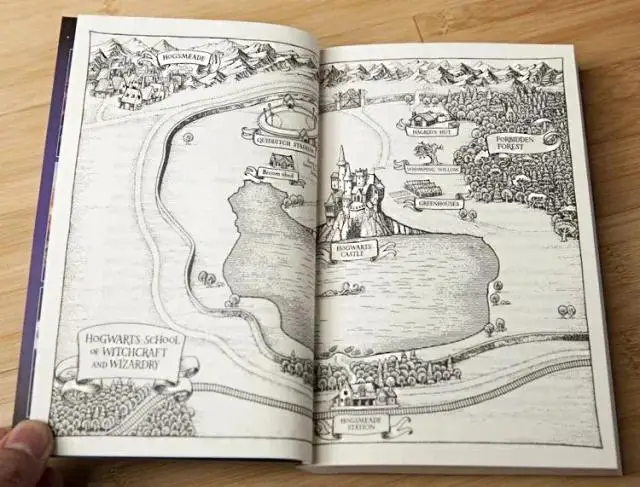 HOGSMEADE
QUIDDITCH
Broom shed
HOGWARTS
CASTLE
HAGRID'S HUT
FORBIDDEN
FOREST
WHOMPING WILLOW
GREENHOUSES
HOGWARTS SCHOOL
OF WITCHCRAFT
AND WIZARDRY
HOGSMEADE
STATION